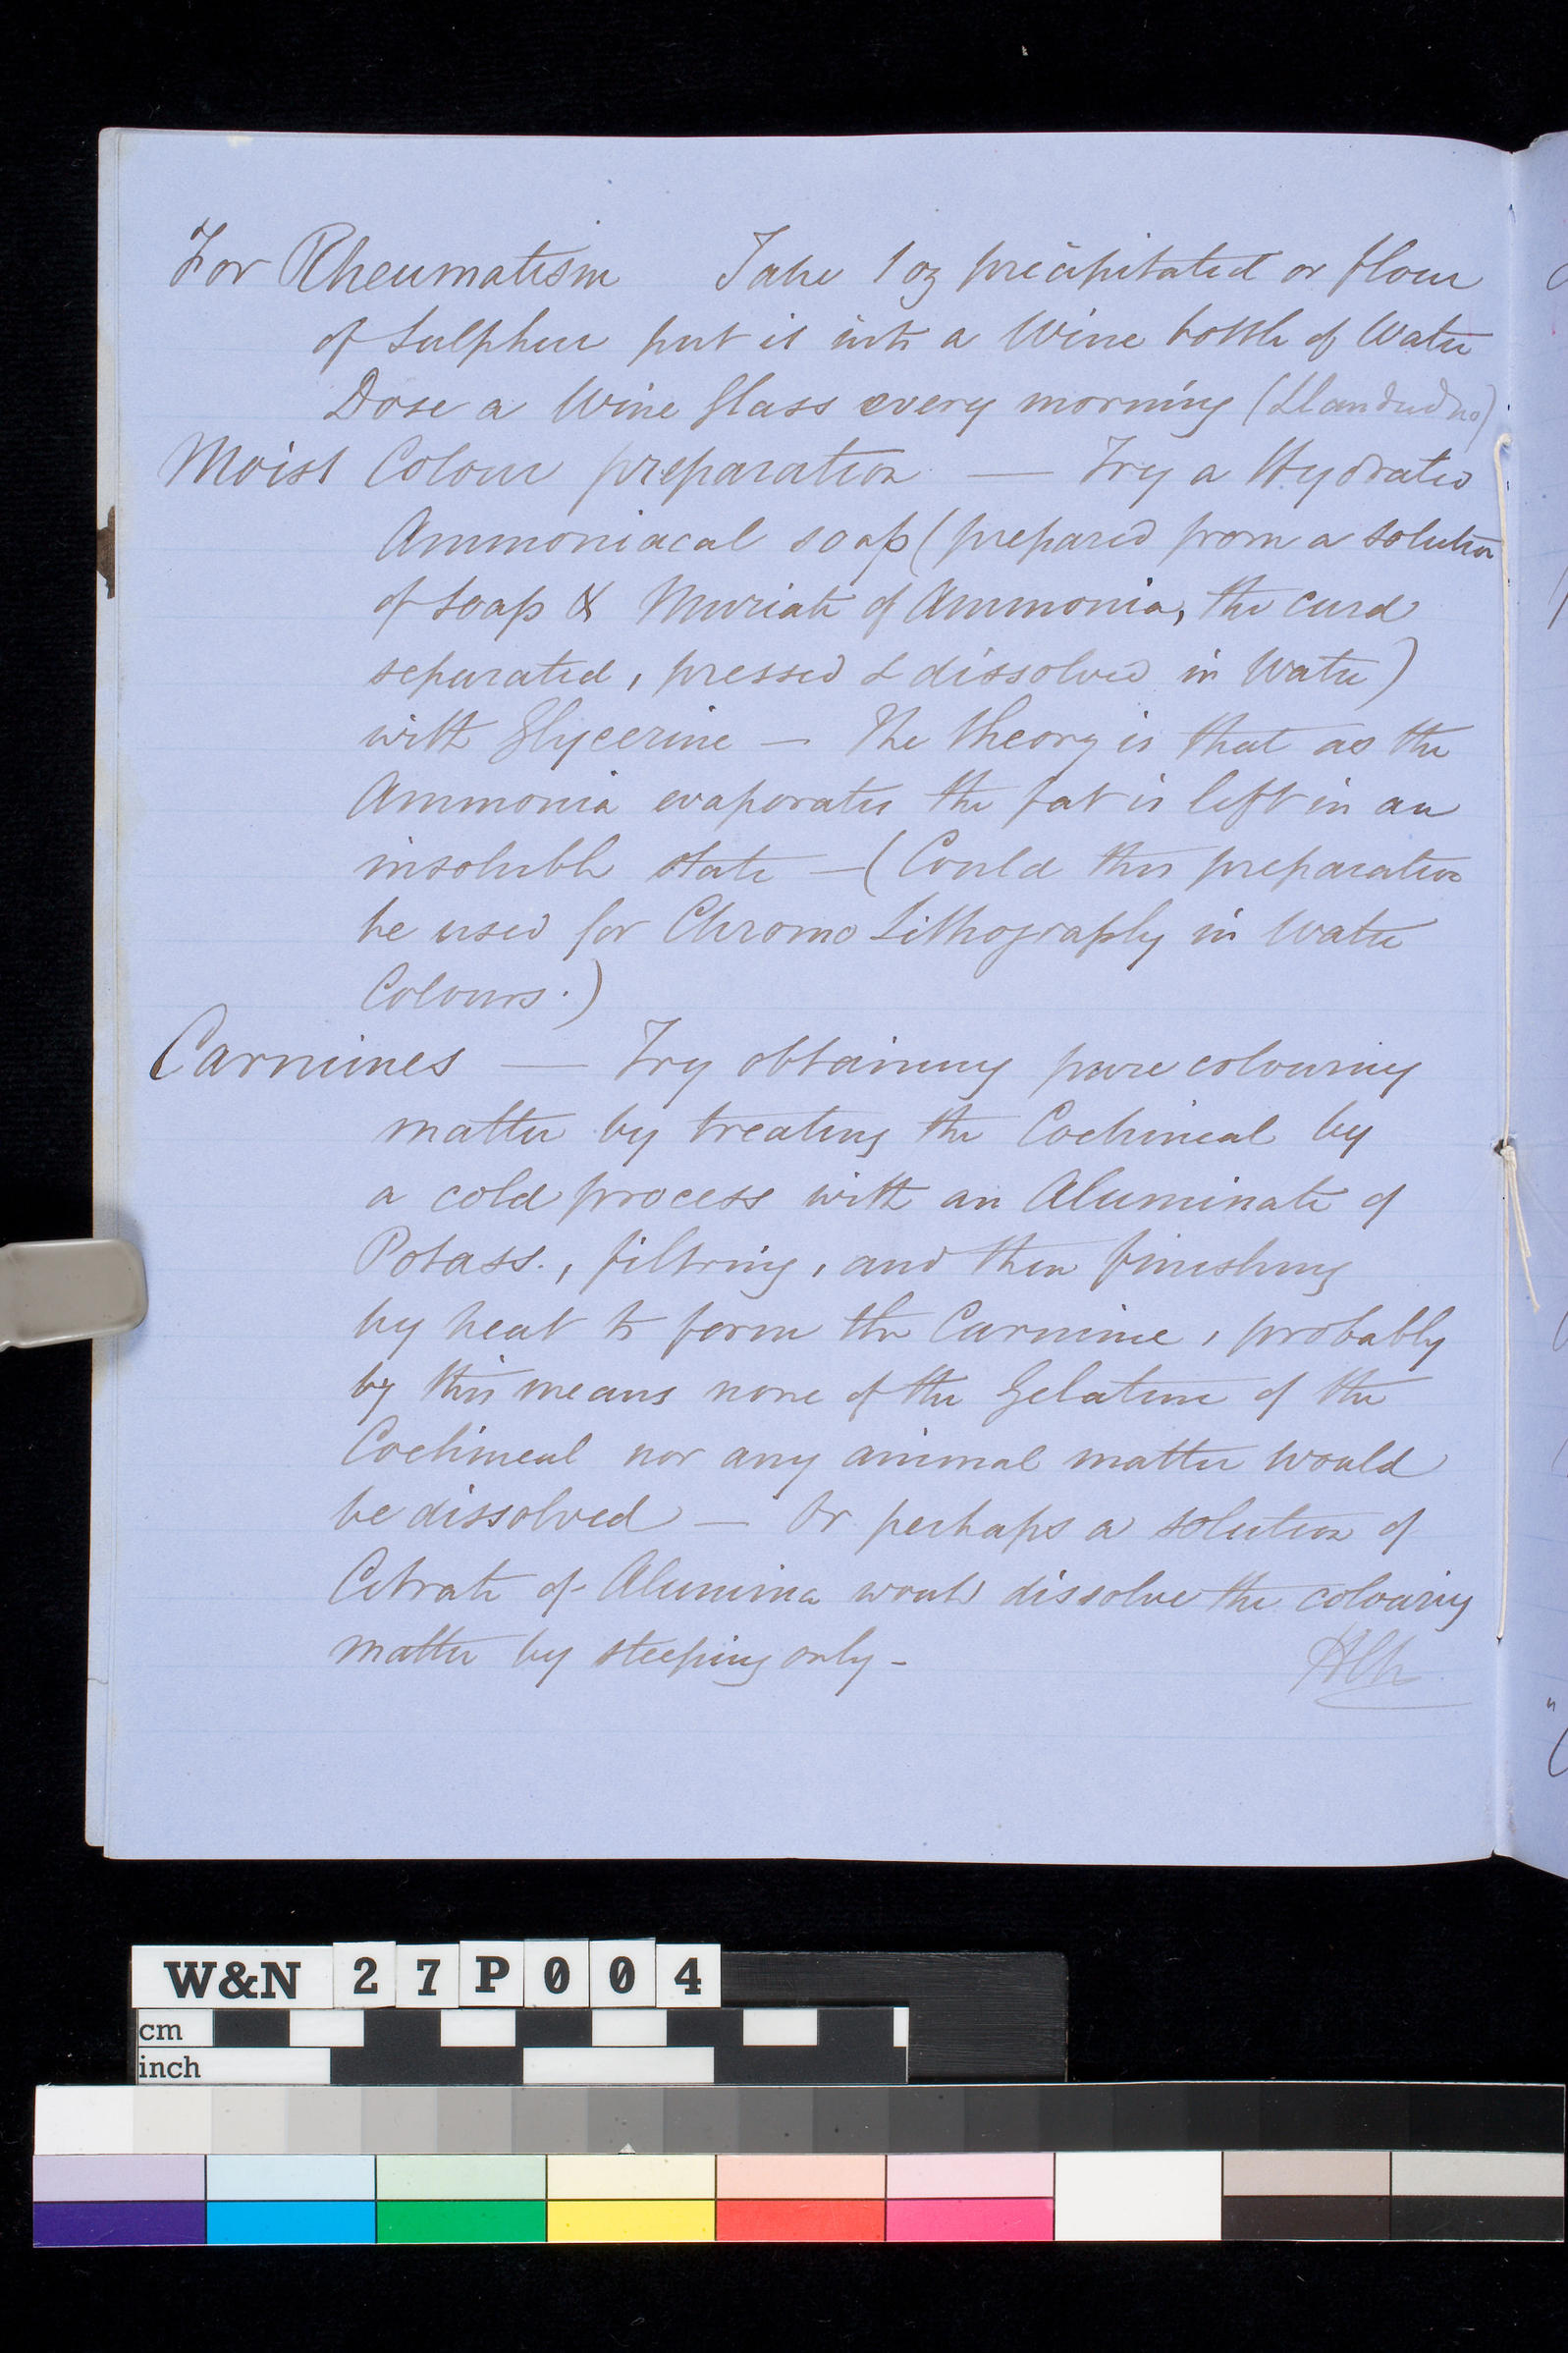 For Rheumatism Take 1 oz precipitated or flour
of Sulphur put it into a Wine bottle of Water
Dose a Wine Glass every morning (Llandudno)
Moist Colour preparation — Try a Hydrated
Ammoniacal soap (prepared from a solution
of Soap & Muriate of Ammonia, the curd
separated, pressed & dissolved in Water)
with Glycerine — The theory is that as the
Ammonia evaporates the fat is left in an
insoluble state — (Could this preparation
be used for Chromo Lithography in Water
Colours.)
Carmines — Try obtaining pure colouring
matter by treating the Cochineal by
a cold process with an Aluminate of
Potass., filtring, and then finishing
by heat to form the Carmine, probably
by this means none of the Gelatine of the
Cochineal nor any animal matter would
be dissolved — Or perhaps a solution of
Citrate of Alumina would dissolve the colouring
matter by steeping only -
W&N 27P004
cm
inch